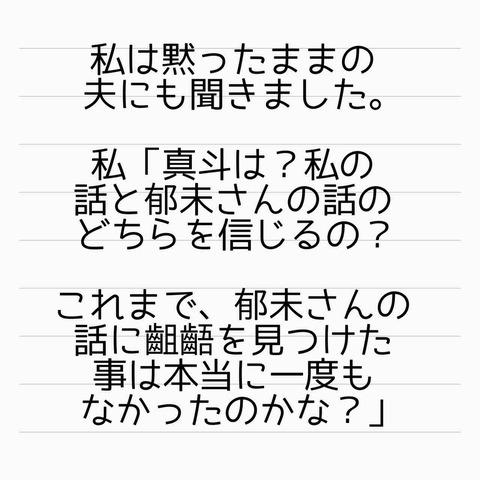 私は黙ったままの
夫にも聞きました。
私「真斗は？私の
話と郁未さんの話の
どちらを信じるの？
これまで、郁未さんの
話に齟齬を見つけた
事は本当に一度も
なかったのかな？」